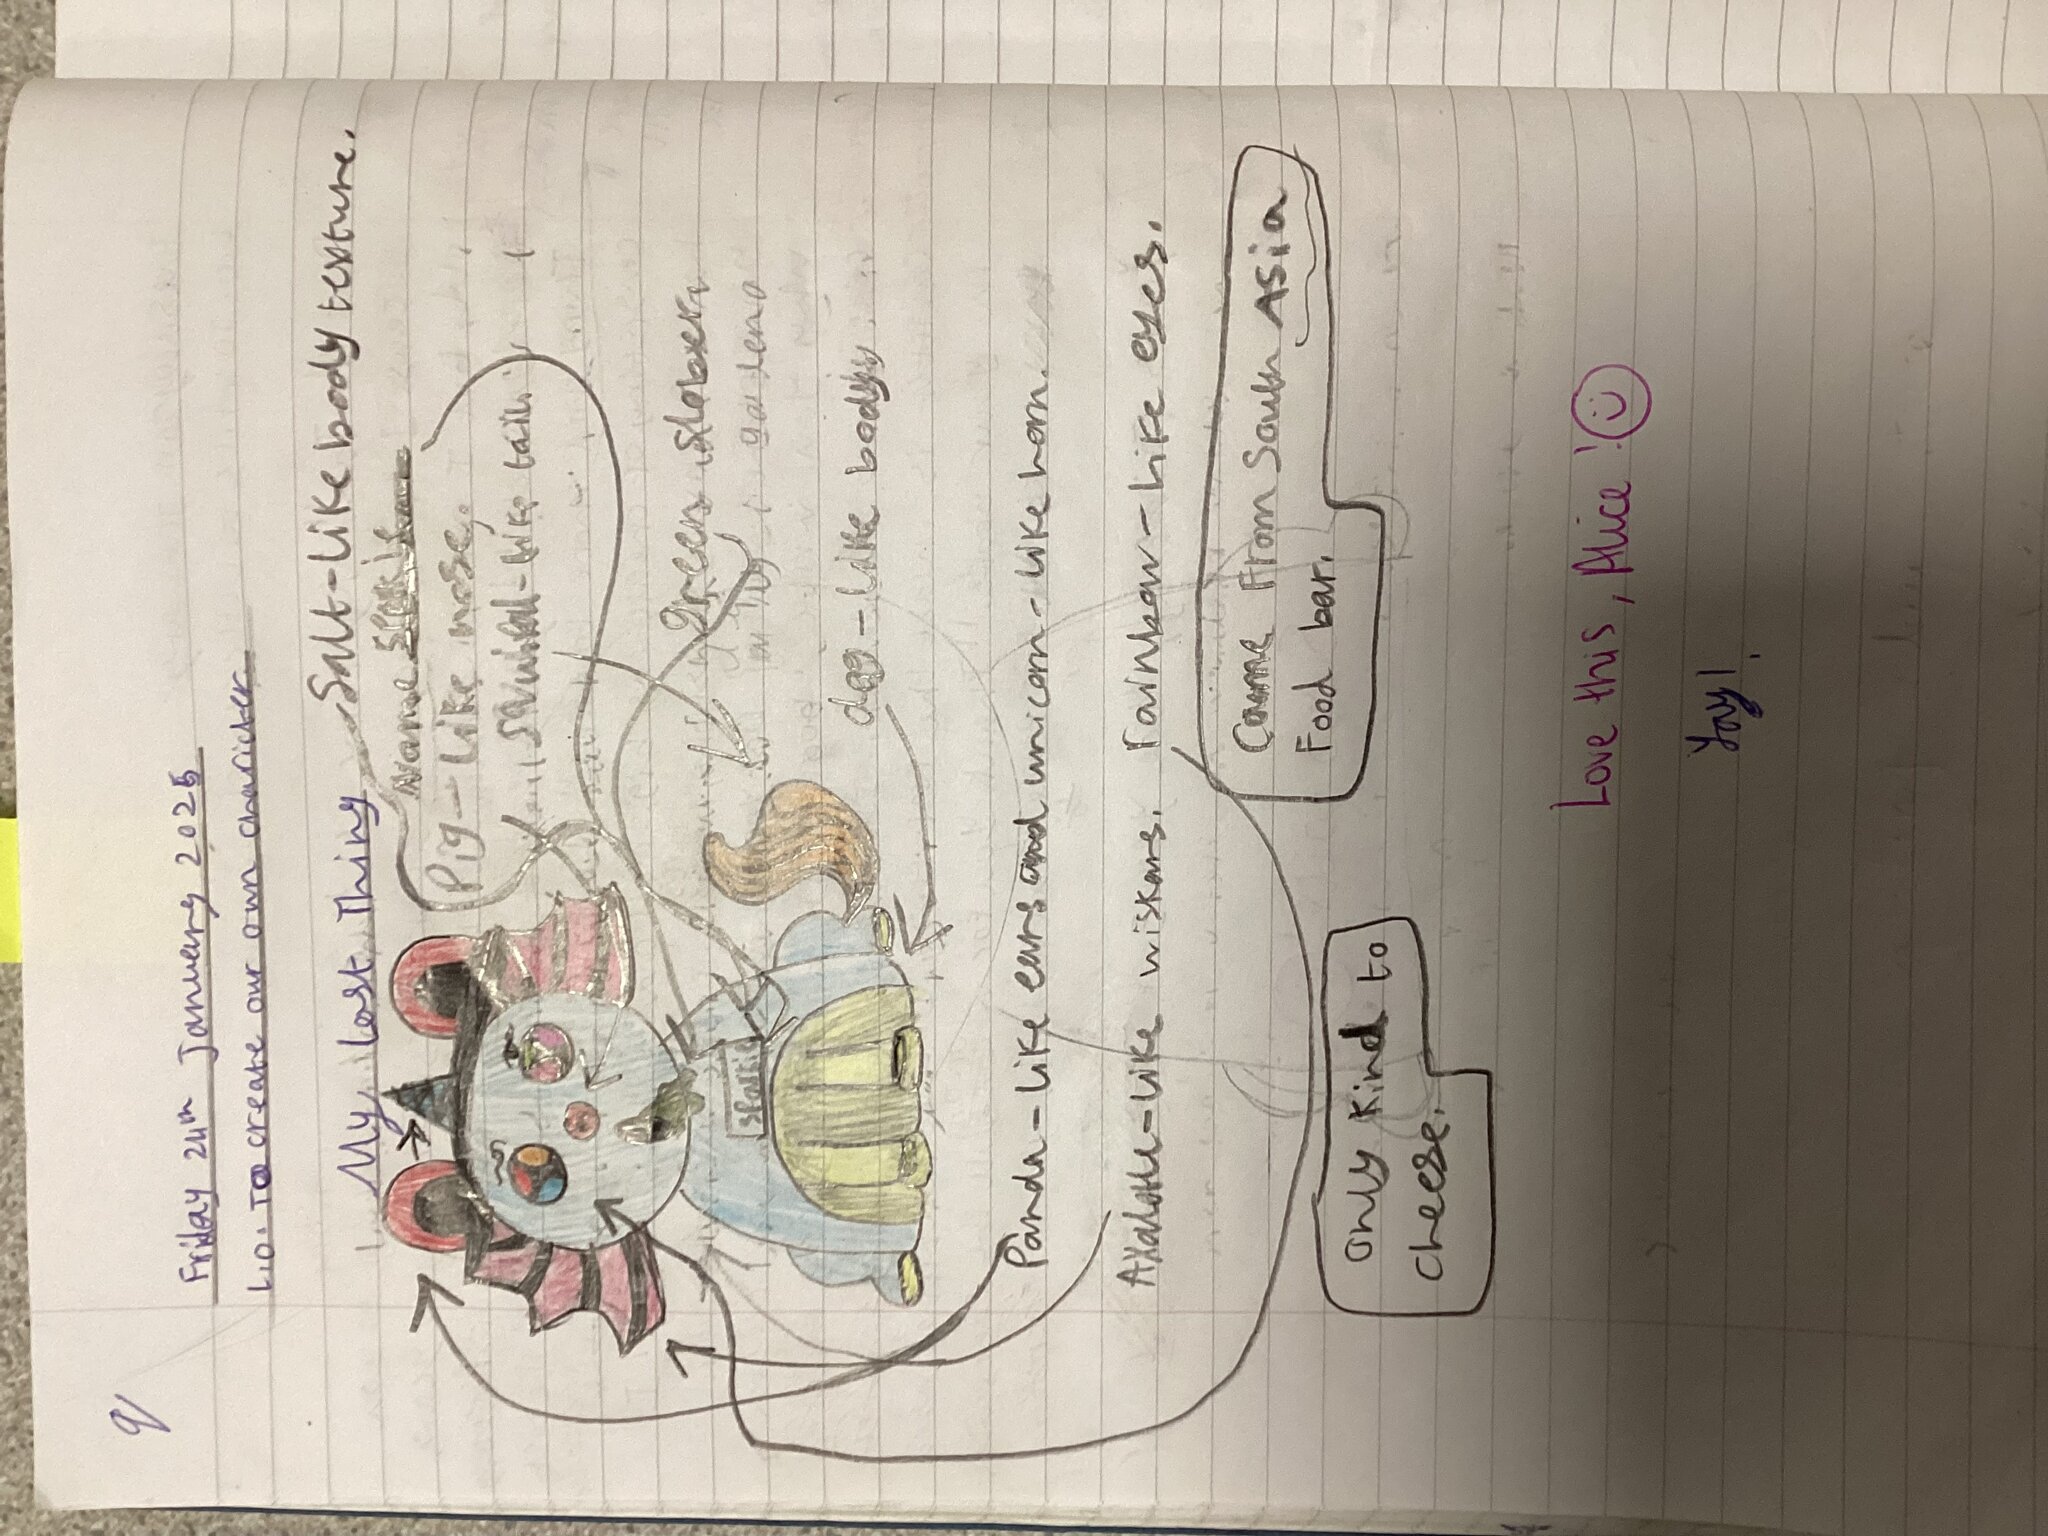 Friday 24th January 2025
L.O. To create our own charicter
My Lost Thing
Salt-Like body texture.
Name
Pig-Like nose.
Squirral-Like tail.
green slober
dog-like body
Panda-Like ears and unicorn-like horn.
Axalotle-Like wiskars. rainbow-Like eyes.
Came From South Asia
Food bar.
only kind to
cheese.
Love this, Alice!
Yay!